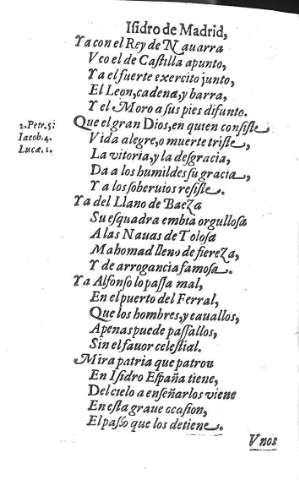 Isidro de Madrid,
Ya con el Rey de Nauarra
Vco el de Castilla apunto,
Ya el fuerte exercito junto,
El Leon, cadena, y barra,
Y el Moro a sus pies difunto.
2. Petr. 5;
Iacob. 4.
Lucæ. 1.
Que el gran Dios, en quien consiste
Vida alegre, o muerte triste,
La vitoria, y la desgracia,
Da a los humildes su gracia,
Y a los soberuios resiste.
Ya del Llano de Baeza
Su esquadra embia orgullosa
A las Nauas de Tolosa
Mahomad lleno de fiereza,
Y de arrogancia famosa.
Ya Alfonso lo passa mal,
En el puerto del Ferral,
Que los hombres, y cauallos,
Apenas puede passallos,
Sin el fauor celestial.
Mira patria que patron
En Isidro España tiene,
Del cielo a enseñarlos viene
En esta graue ocasion,
El passo que los detiene.
Vnos